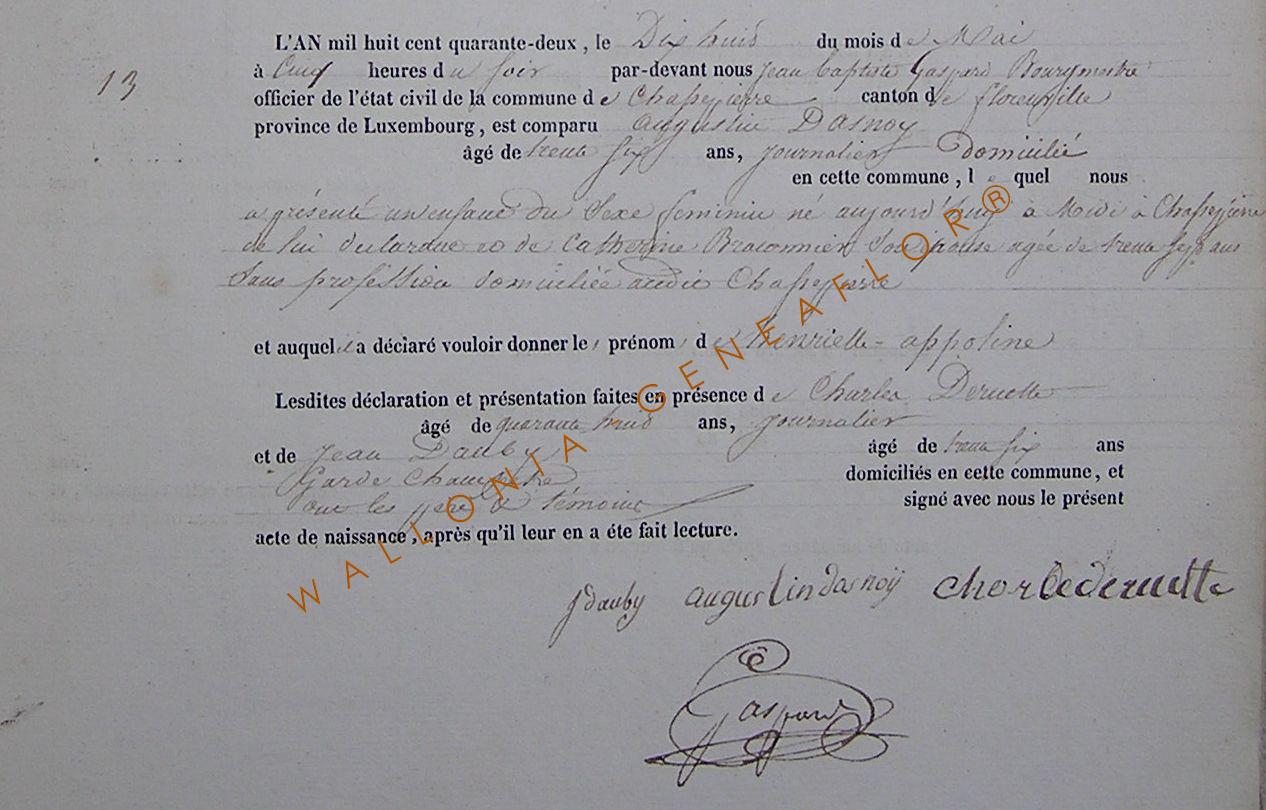 13
L'AN mil huit cent quarante-deux, le Dix huit du mois de Mai
à Cinq heures du soir par-devant nous Jean baptiste Gaspard Bourgmestre
officier de l'état civil de la commune de Chassepierre canton de florenville
province de Luxembourg, est comparu augustin Dasnoy
âgé de trente six ans, journalier Domicilié
en cette commune, lequel nous
a présenté un enfant du Sexe feminin né aujourd'huy à Midi à Chassepierre
de lui déclarant et de Catherine Braconnier Son épouse agée de trente sept ans
Sans profession domiciliée audit Chassepierre
et auquel il a déclaré vouloir donner le prénom de henriette - appoline
Lesdites déclaration et présentation faites en présence de Charles Deruette
âgé de quarante huit ans, journalier
et de Jean Dauby âgé de trente six ans
Garde Champêtre domiciliés en cette commune, et
ont les père et témoins signé avec nous le présent
acte de naissance, après qu'il leur en a éte fait lecture.
Jdauby augustin dasnoÿ charle deruette
Gaspard
WALLONIA GENEAFLOR®